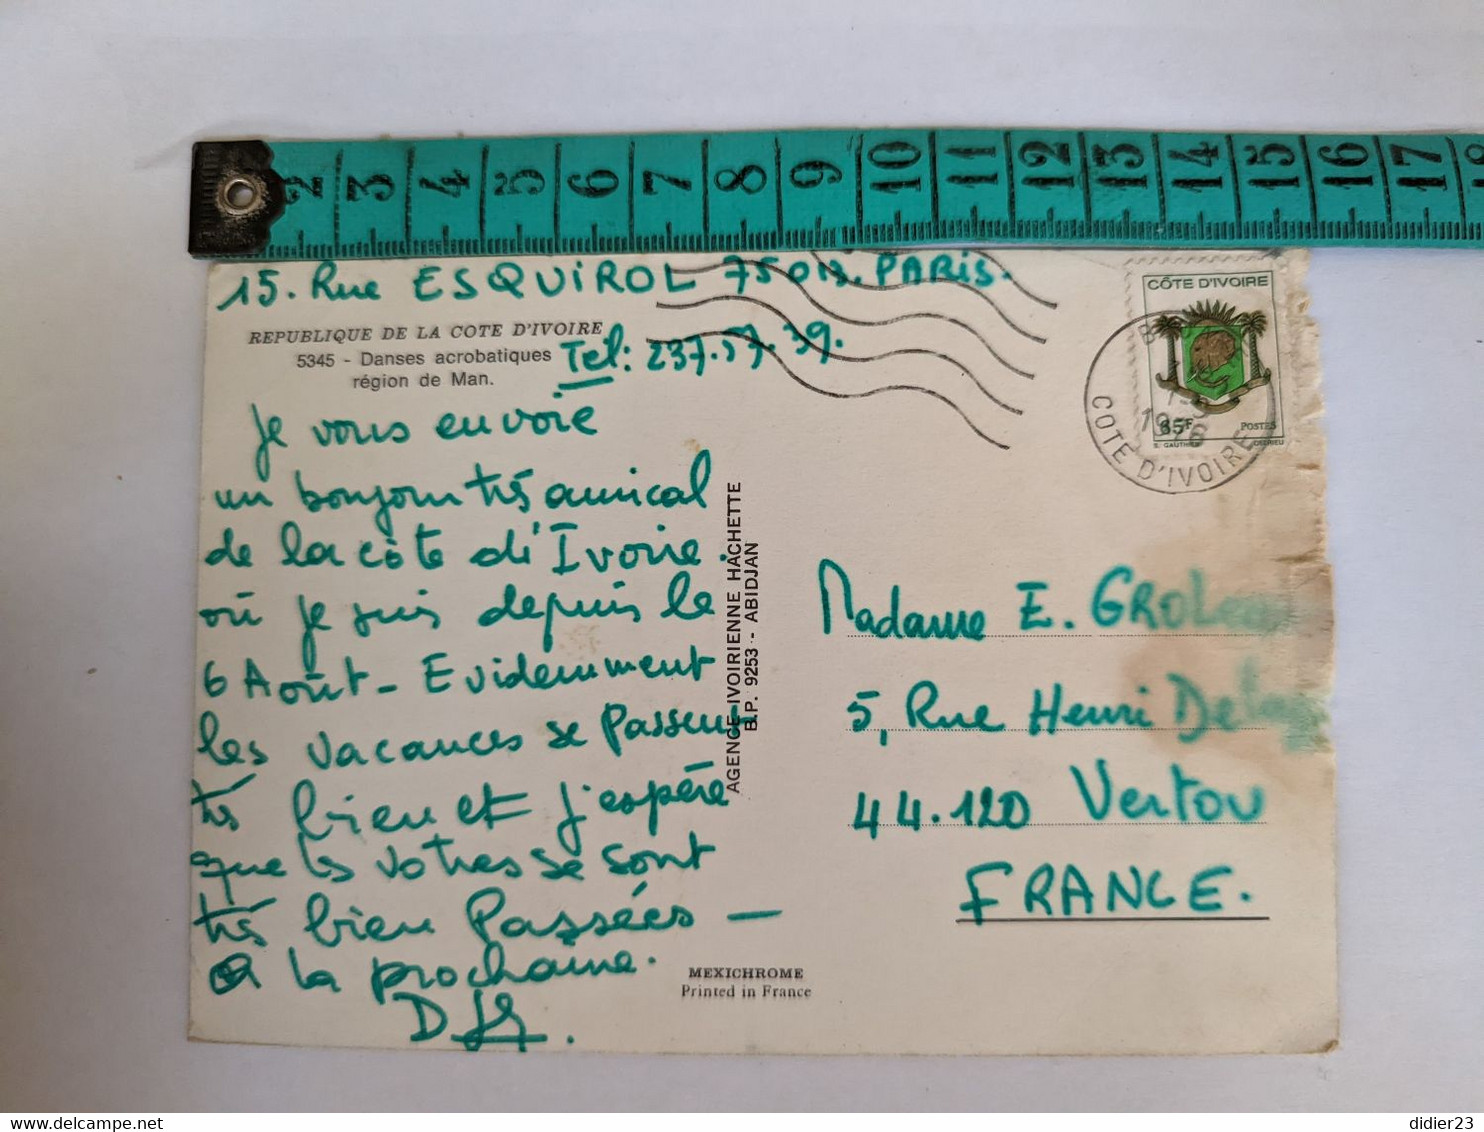 2 3 4 5 6 7 8 9 10 11 12 13 14 15 16 17 18
15. Rue ESQUiROL 75013. PARiS.
REPUBLIQUE DE LA COTE D'IVOIRE
5345 - Danses acrobatiques
région de Man.
Tel: 237.57.39.
je vous envoie
un bonjour très amical
de la côte d'Ivoire.
où je suis depuis le
6 Août - Evidemment
les vacances se passent
très bien et j'espère
que les votres se sont
très bien Passées —
A la prochaine.
AGENCE IVOIRIENNE HACHETTE
B.P. 9253 - ABIDJAN
MEXICHROME
Printed in France
CÔTE D'IVOIRE
35F
POSTES
S. GAUTHIER
DELRIEU
1976
COTE D'IVOIRE
Madame E.
5, Rue Henri
44.120 Vertou
FRANCE.
didier23